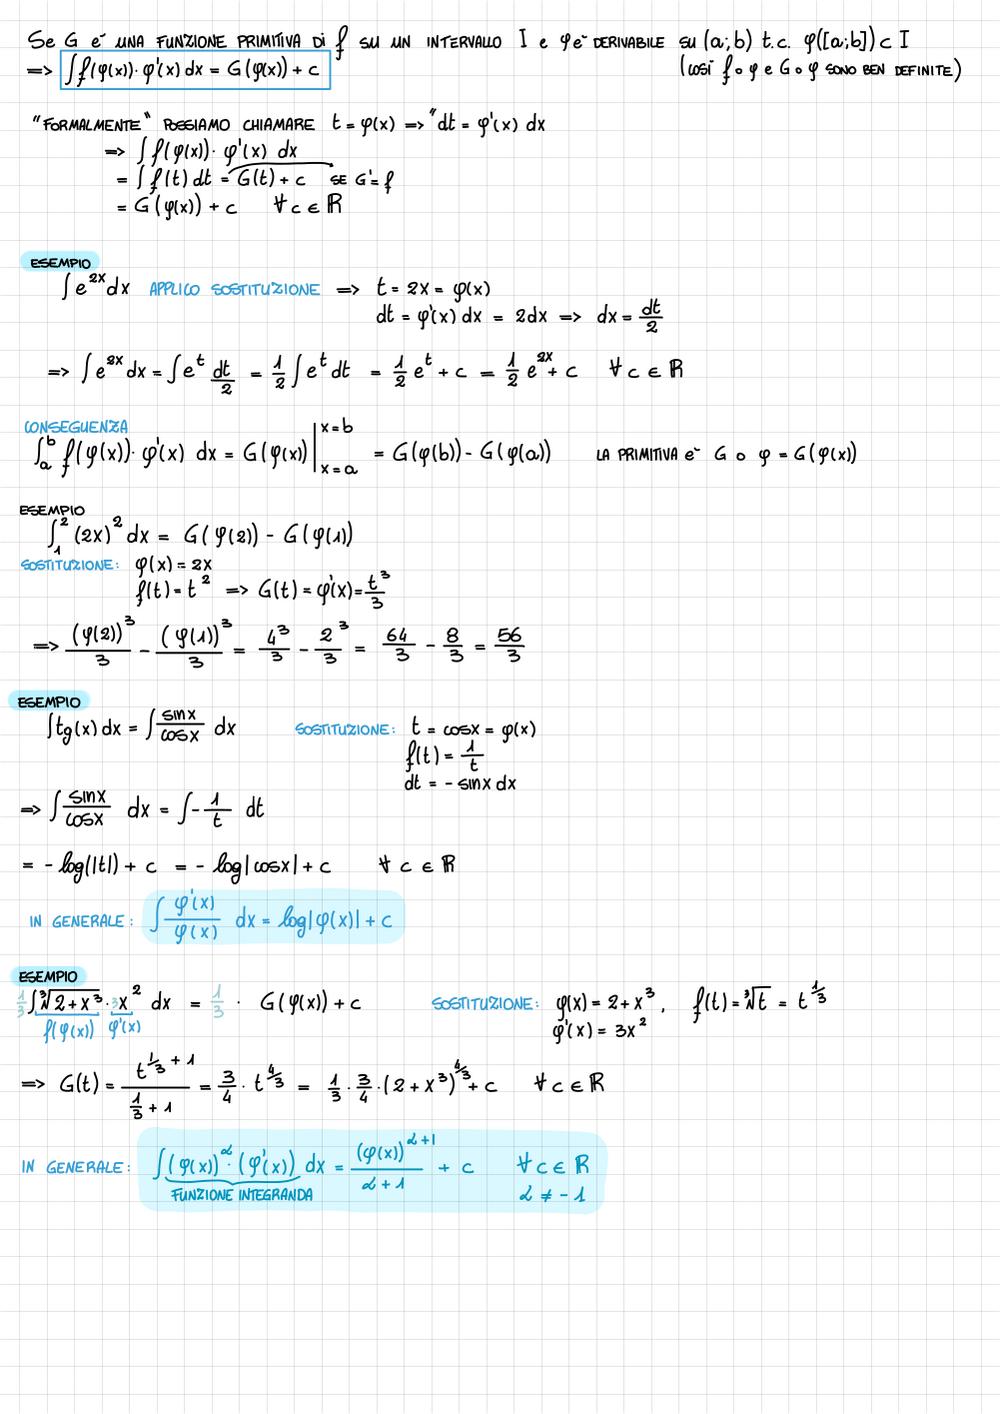 Se G è UNA FUNZIONE PRIMITIVA Di f SU UN INTERVALLO I e φ è DERIVABILE su (a;b) t.c. φ([a;b]) ⊂ I
=> ∫f(φ(x))·φ'(x) dx = G(φ(x)) + c (così f∘φ e G∘φ SONO BEN DEFINITE)
"FORMALMENTE" POSSIAMO CHIAMARE t = φ(x) => "dt = φ'(x) dx
=> ∫ f(φ(x))· φ'(x) dx
= ∫ f(t) dt = G(t) + c SE G' = f
= G(φ(x)) + c ∀ c ∈ ℝ
ESEMPIO
∫ e^{2x} dx APPLICO SOSTITUZIONE => t = 2x = φ(x)
dt = φ'(x) dx = 2dx => dx = dt/2
=> ∫ e^{2x} dx = ∫ e^t dt/2 = 1/2 ∫ e^t dt = 1/2 e^t + c = 1/2 e^{2x} + c ∀ c ∈ ℝ
CONSEGUENZA
∫_a^b f(φ(x))· φ'(x) dx = G(φ(x)) |_{x=a}^{x=b} = G(φ(b)) - G(φ(a)) LA PRIMITIVA è G ∘ φ = G(φ(x))
ESEMPIO
∫_1^2 (2x)^2 dx = G(φ(2)) - G(φ(1))
SOSTITUZIONE: φ(x) = 2x
f(t) = t^2 => G(t) = φ'(x) = t^3/3
=> (φ(2))^3/3 - (φ(1))^3/3 = 4^3/3 - 2^3/3 = 64/3 - 8/3 = 56/3
ESEMPIO
∫tg(x) dx = ∫ sinx/cosx dx SOSTITUZIONE: t = cosx = φ(x)
f(t) = 1/t
dt = - sinx dx
=> ∫ sinx/cosx dx = ∫ - 1/t dt
= - log(|t|) + c = - log|cosx| + c ∀ c ∈ ℝ
IN GENERALE: ∫ φ'(x)/φ(x) dx = log|φ(x)| + c
ESEMPIO
1/3 ∫ ∛(2+x^3) · 3x^2 dx = 1/3 · G(φ(x)) + c SOSTITUZIONE: φ(x) = 2+x^3, f(t) = ∛t = t^{1/3}
f(φ(x)) φ'(x) φ'(x) = 3x^2
=> G(t) = t^{1/3 + 1}/(1/3 + 1) = 3/4 · t^{4/3} = 1/3 · 3/4 · (2+x^3)^{4/3} + c ∀ c ∈ ℝ
IN GENERALE: ∫(φ(x))^α · (φ'(x)) dx = (φ(x))^{α+1}/(α+1) + c ∀ c ∈ ℝ
FUNZIONE INTEGRANDA α ≠ -1